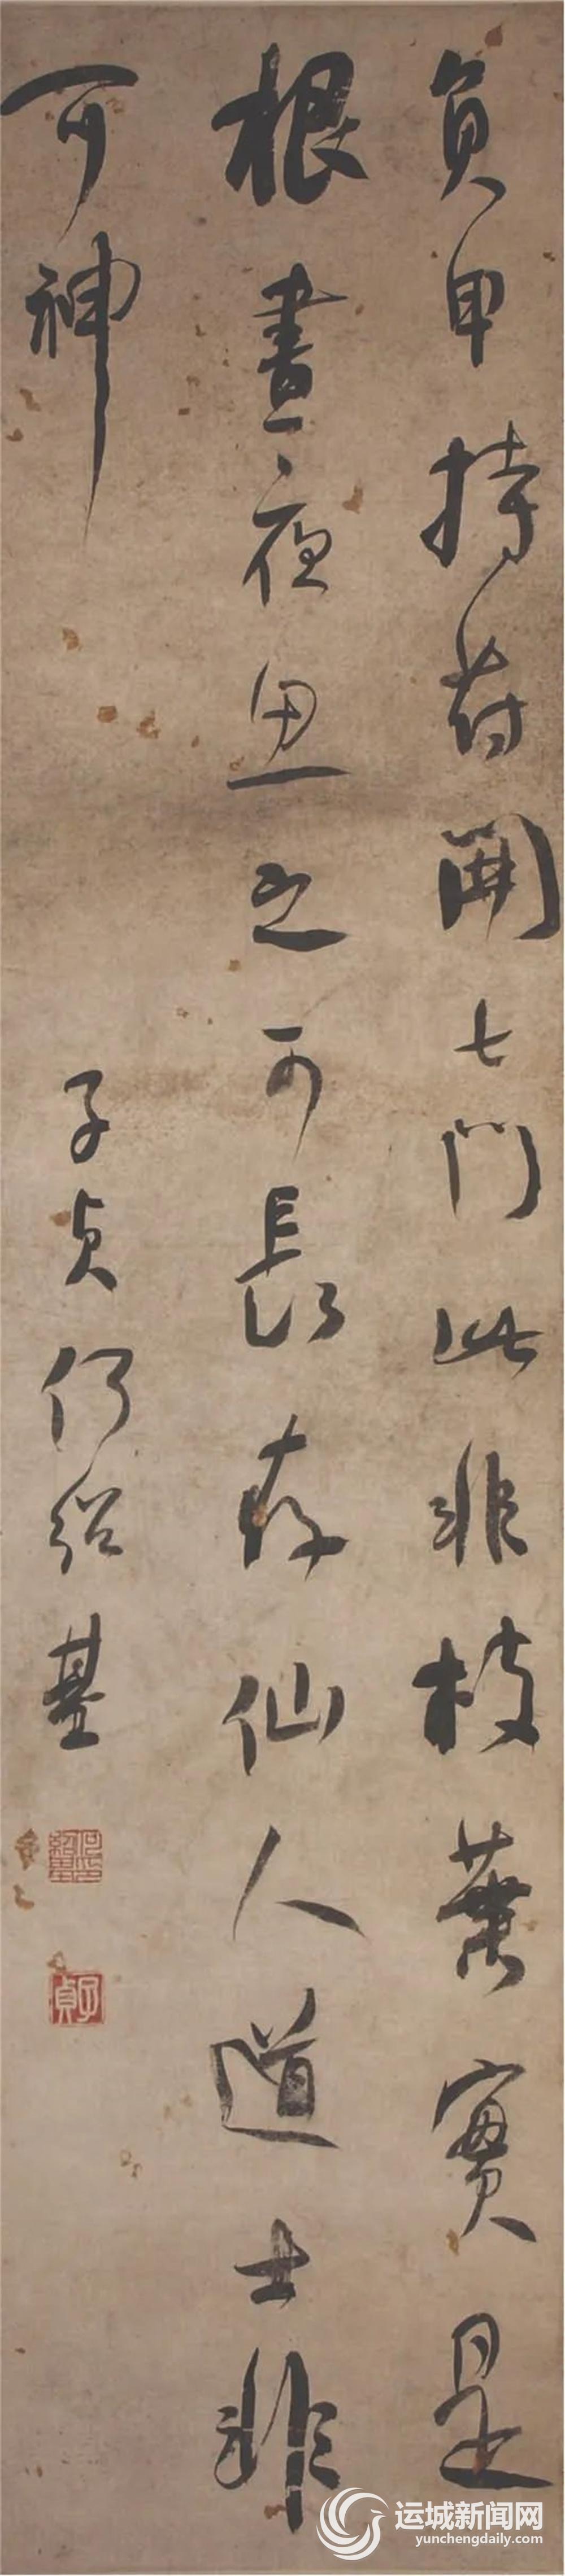 負甲持苻開七門此非枝葉實是
根晝夜思之可長存仙人道士非
可神
子貞何紹基
子貞
运城新闻网
yunchengdaily.com